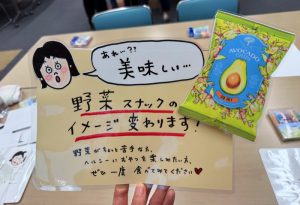 あれっ??
美味しい…
野菜スナックの
イメージ変わります!
野菜がちょっと苦手な人、
ヘルシーにおやつを楽しみたい人、
ぜひ一度 食べてみてください♥
AVOCADO